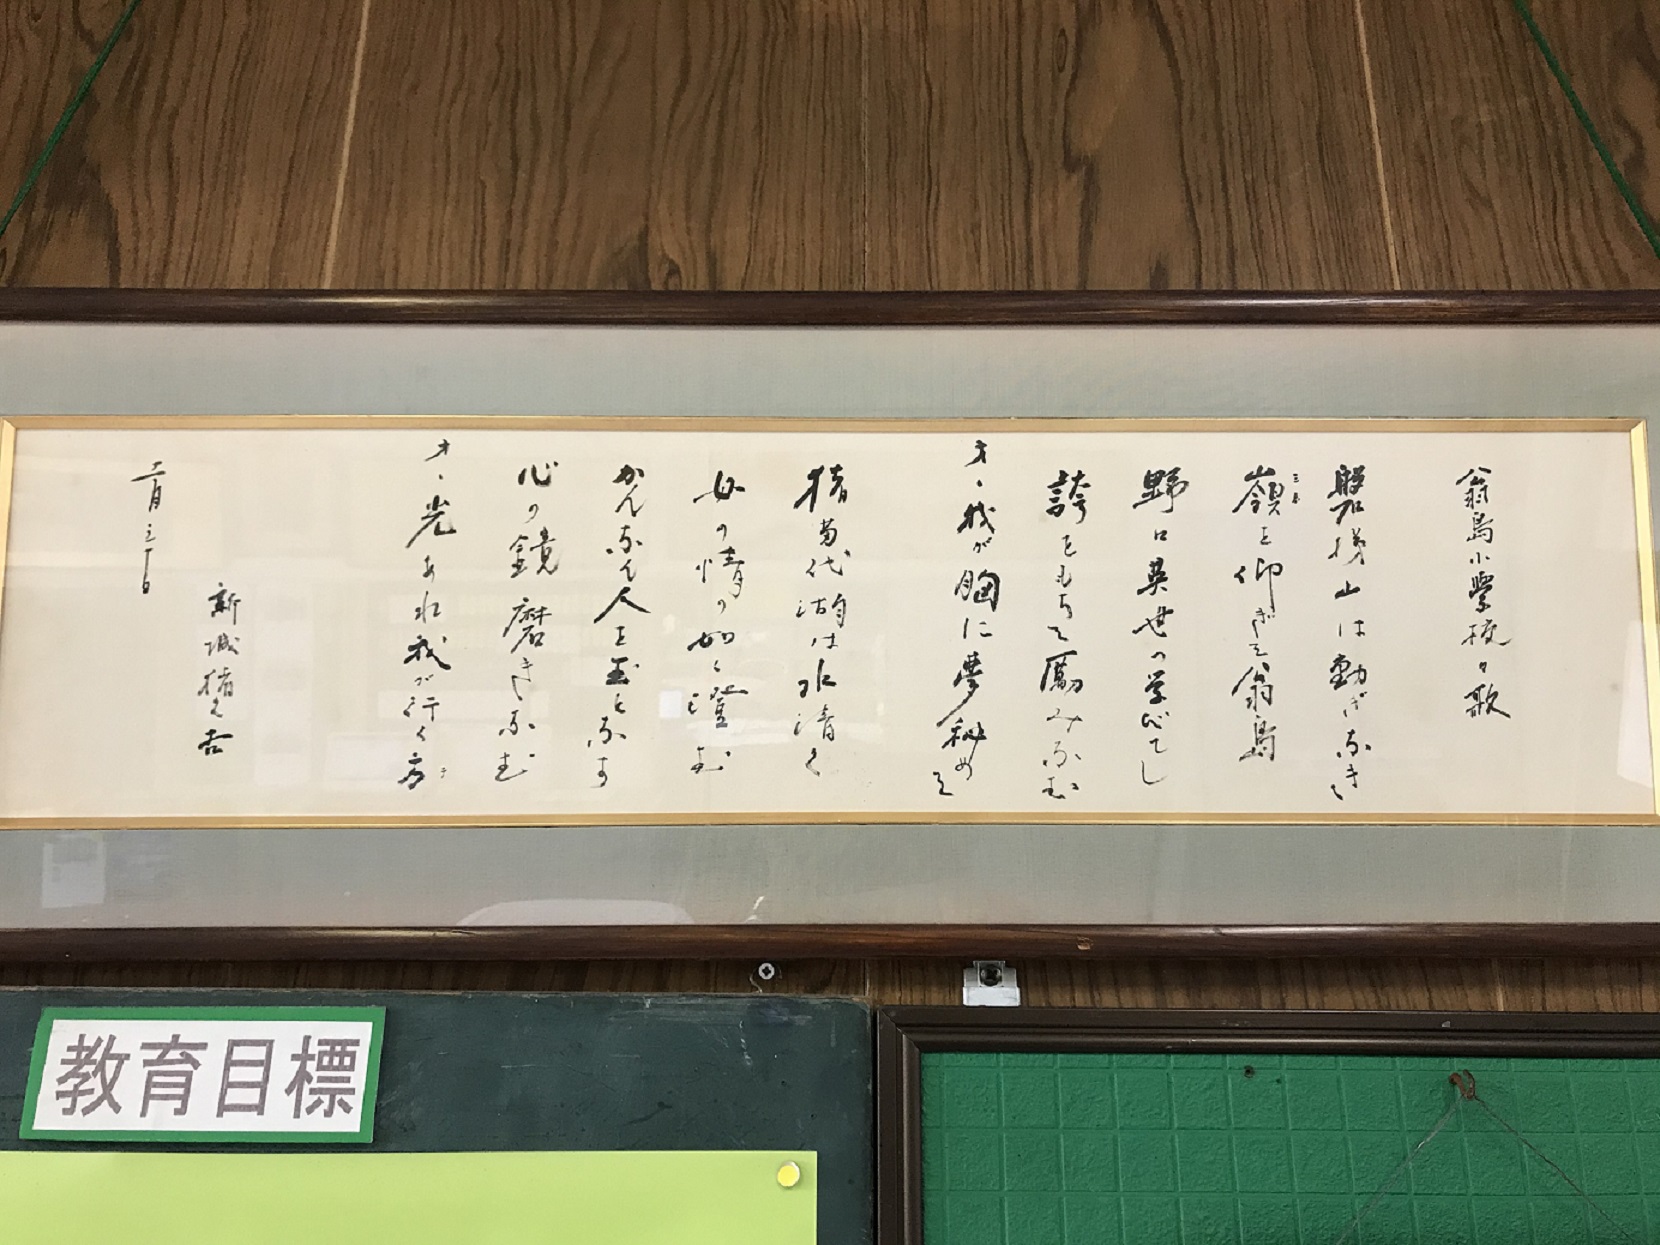 翁島小学校々歌
磐梯山は動ぎなき
嶺を仰ぎて翁島
みね
野口英世の学びてし
誇をもちて励みなむ
オヽ我が胸に夢秘めて
猪苗代湖は水清く
母の情の如く澄む
かんなん人を玉となす
心の鏡磨きなむ
オヽ光あれ我が行く方
新城猪之吉
教育目標